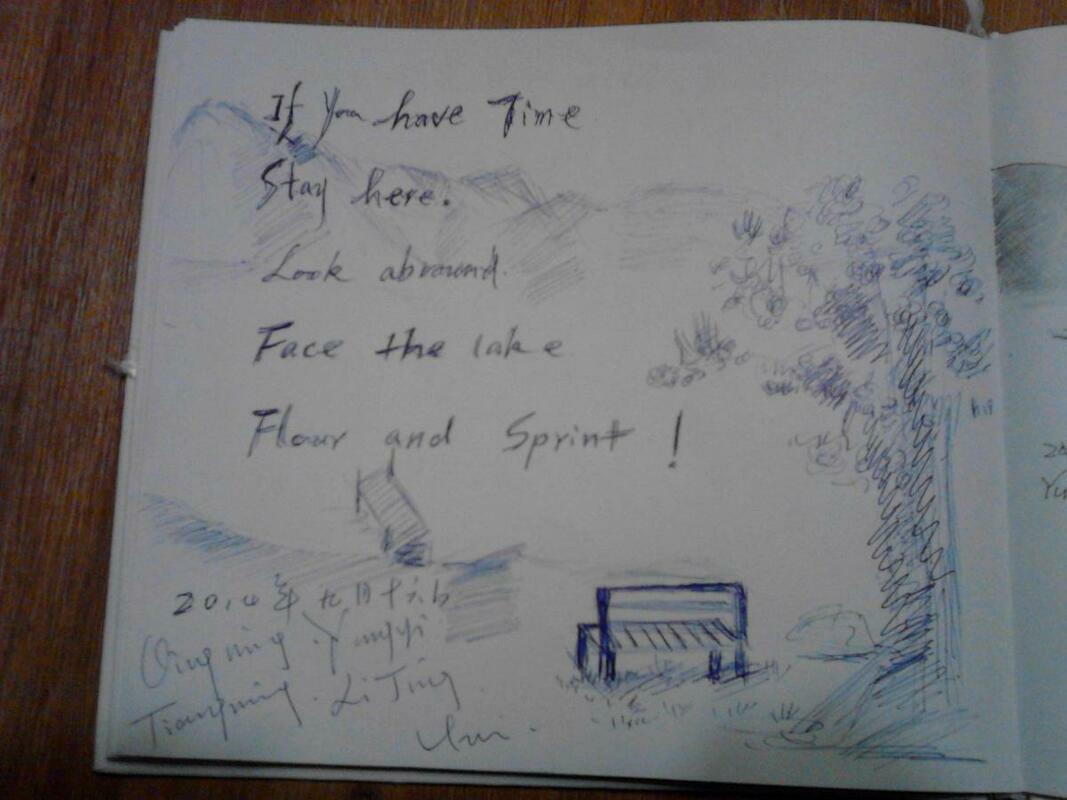 If You have Time
Stay here.
Look abround.
Face the lake
Flour and Sprint !
2014年九月十六日
Qingming . Yangyi
Tiangming . Li Ting